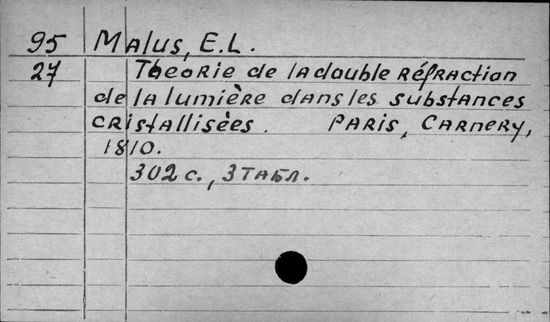 95 Malus, E.L.
27 Theorie de la double réfraction
de la lumière dans les substances
cristallisées. Paris, Carnery,
1810.
302 с., 3 табл.